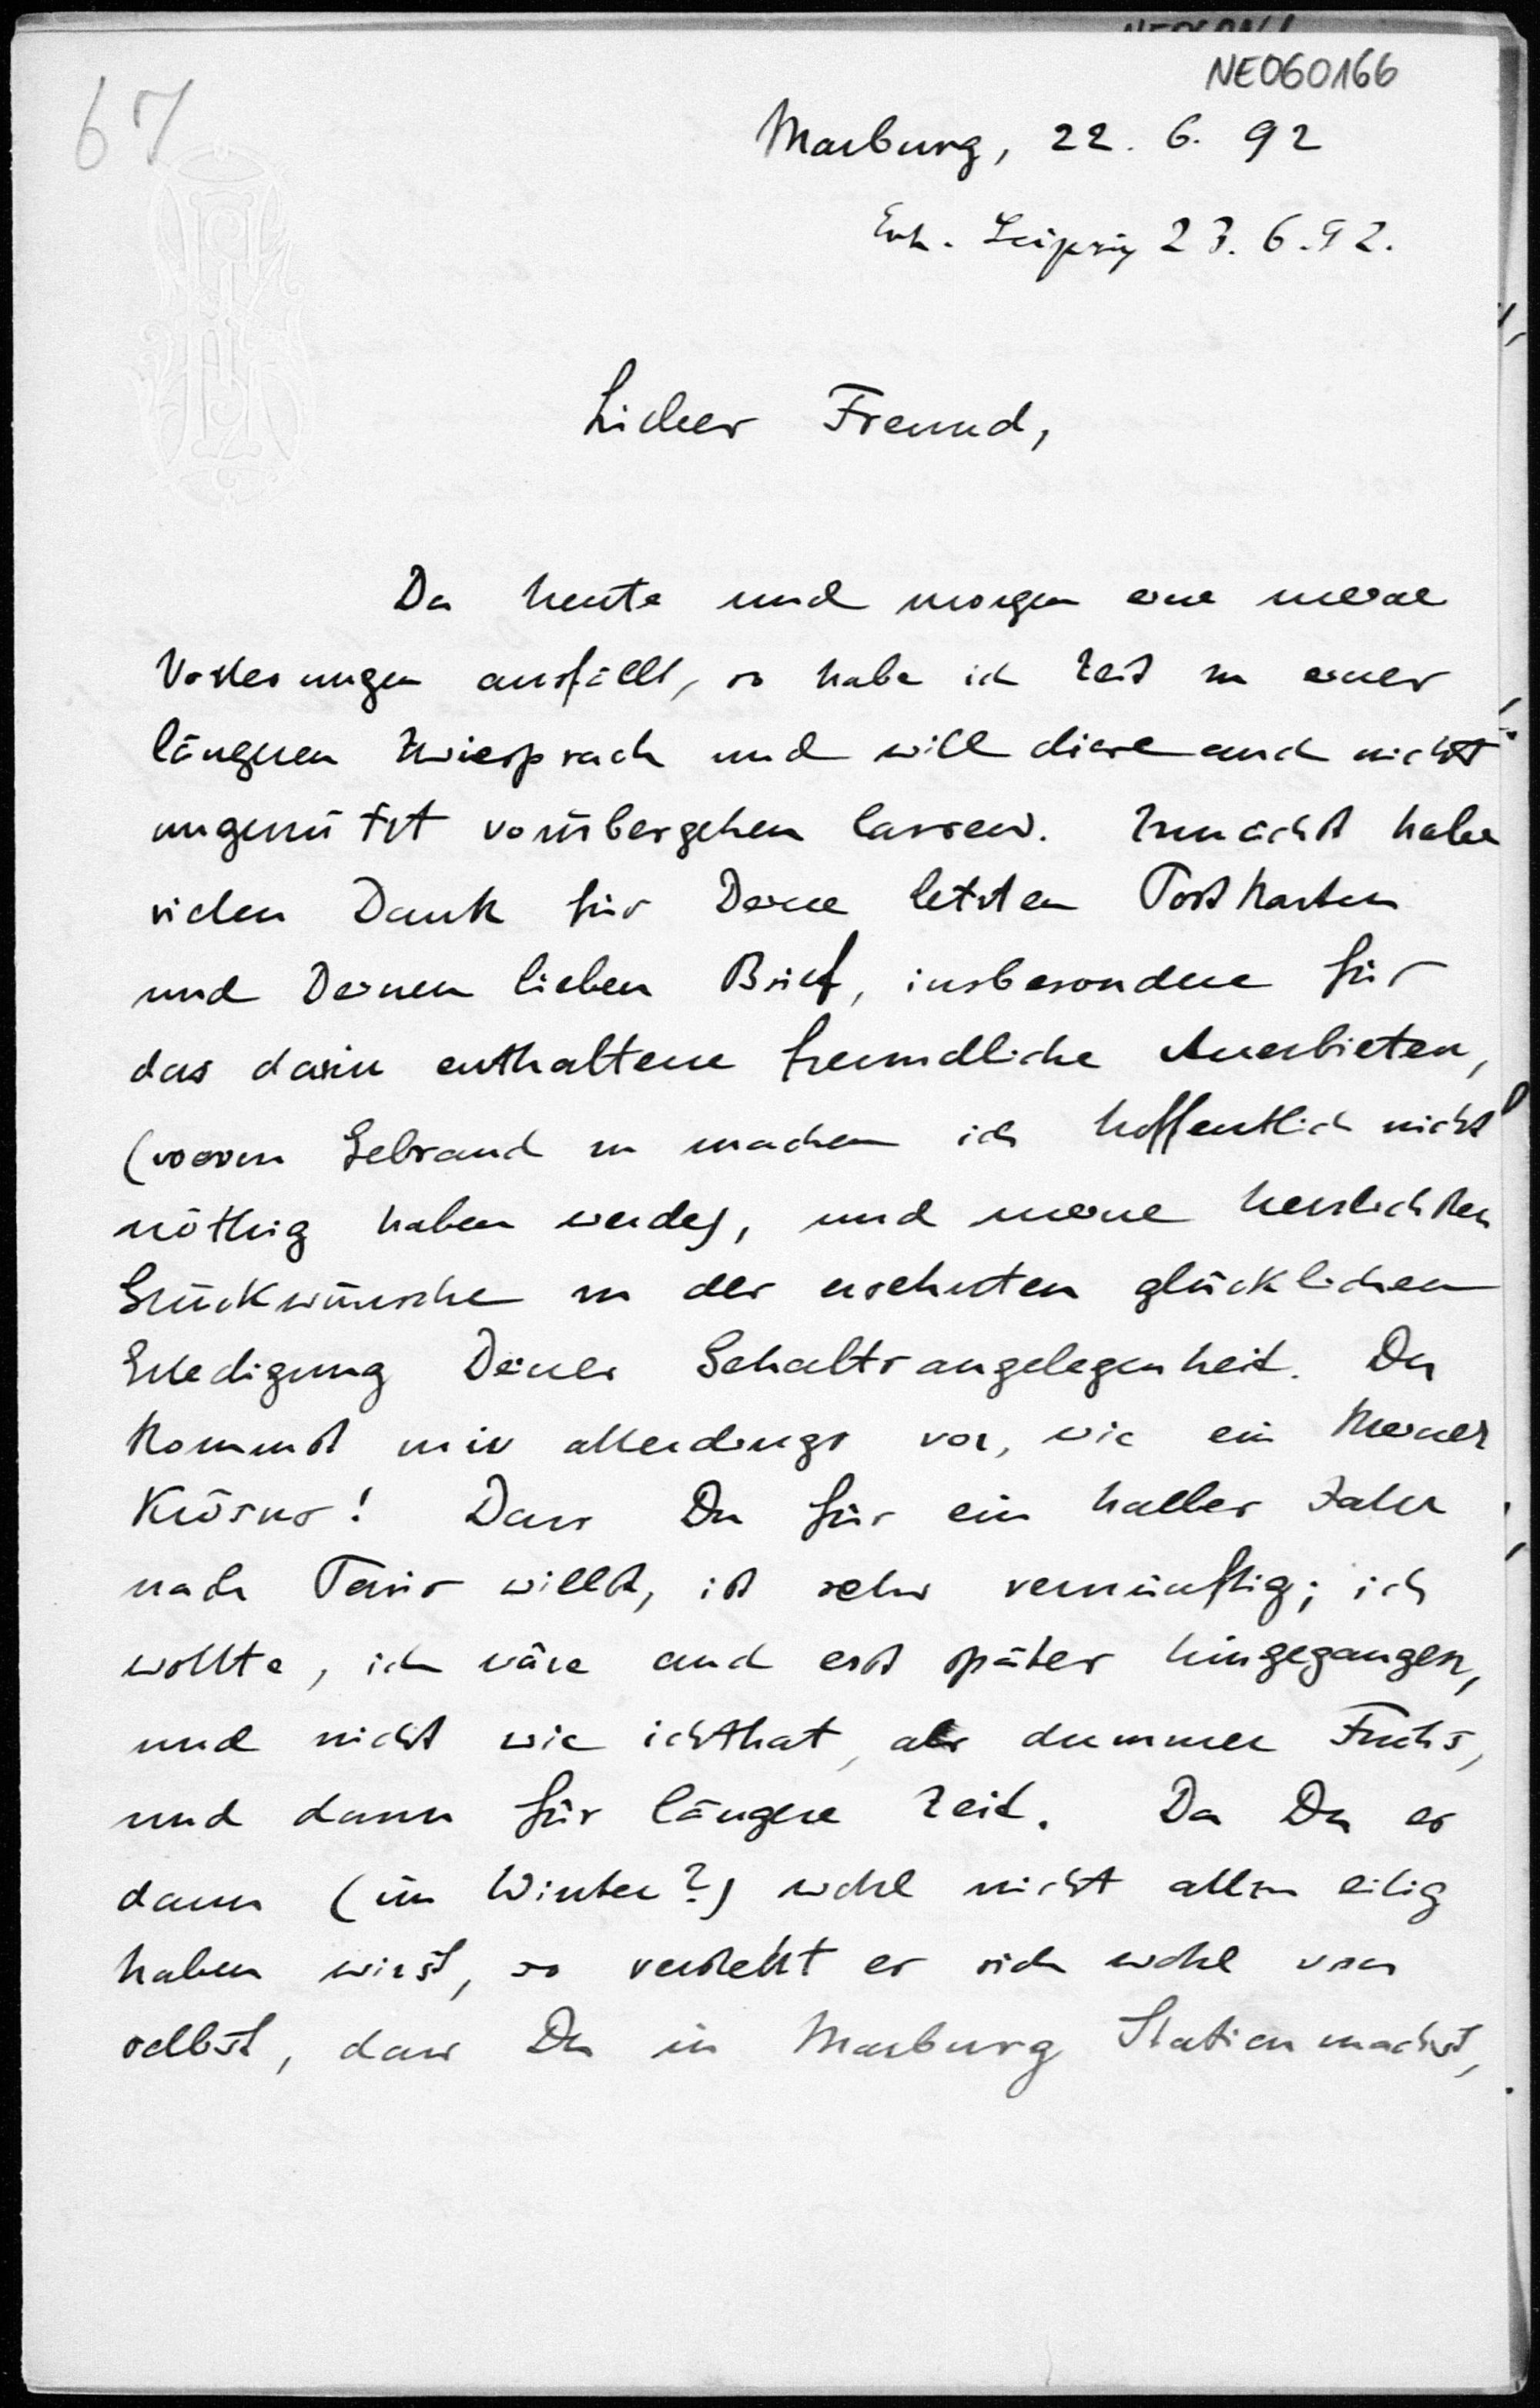 NE060166
67
Marburg, 22. 6. 92
Erh. Leipzig 23. 6. 92.
Lieber Freund,
Da heute und morgen eine meine
Vorlesungen ausfällt, so habe ich Zeit zu einer
längeren Zwiesprach und will diese auch nicht
ungenützt vorübergehen lassen. Zunächst habe
vielen Dank für Deine letzten Postkarten
und Deinen lieben Brief, insbesondere für
das darin enthaltene freundliche Anerbieten,
(wovon Gebrauch zu machen ich hoffentlich nicht
nöthig haben werde), und meine herzlichsten
Glückwünsche zu der ersehnten glücklichen
Erledigung Deiner Gehaltsangelegenheit. Du
kommst mir allerdings vor, wie ein kleiner
Krösus! Dass Du für ein halbes Jahr
nach Paris willst, ist sehr vernünftig; ich
wollte, ich wäre auch erst später hingegangen,
und nicht wie ich that, als dummer Fuchs,
und dann für längere Zeit. Da Du es
dann (im Winter?) wohl nicht allzu eilig
haben wirst, so versteht es sich wohl von
selbst, dass Du in Marburg Station machst,